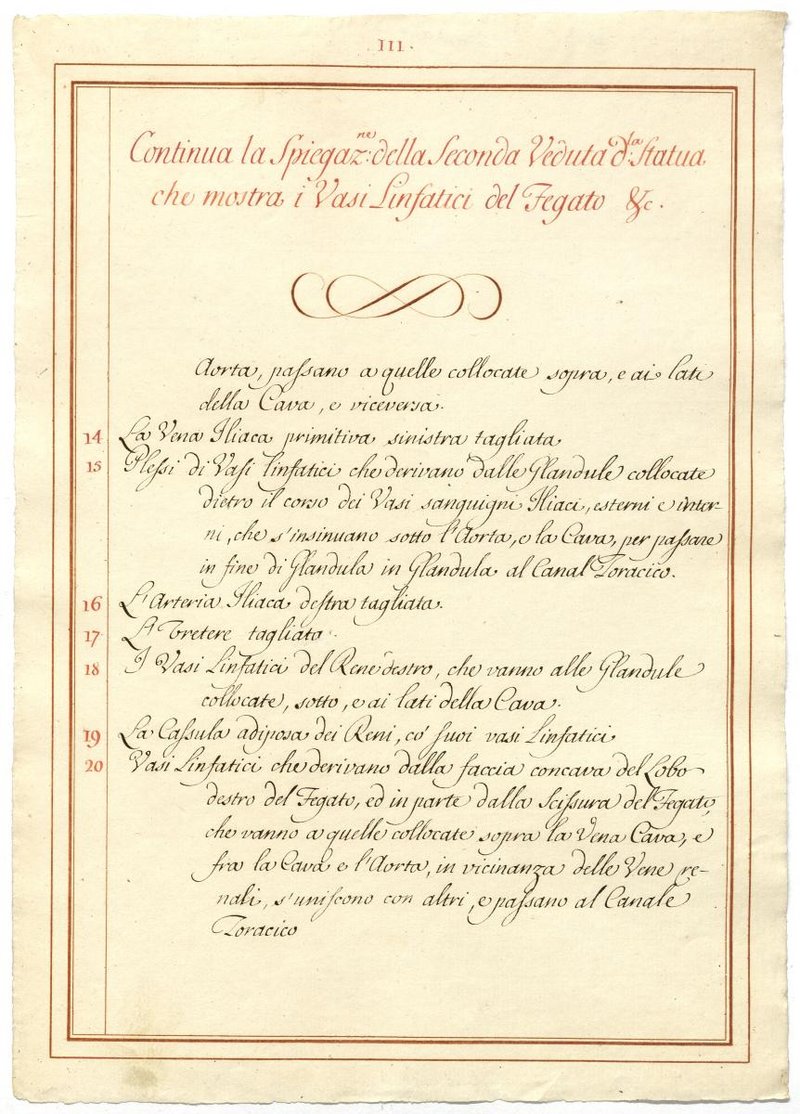 III.
Continua la Spiegaz.ne della Seconda Veduta d.la Statua
che mostra i Vasi Linfatici del Fegato &c.
Aorta, passano a quelle collocate sopra, e ai lati
della Cava, e viceversa.
14 La Vena Iliaca primitiva sinistra tagliata
15 Plessi di Vasi linfatici che derivano dalle Glandule collocate
dietro il corso dei Vasi sanguigni Iliaci, esterni e inter-
ni, che s'insinuano sotto l'Aorta, e la Cava, per passare
in fine di Glandula in Glandula al Canal Toracico.
16 L'Arteria Iliaca destra tagliata.
17 L'Uretere tagliato.
18 I Vasi Linfatici del Rene destro, che vanno alle Glandule
collocate, sotto, e ai lati della Cava.
19 La Cassula adiposa dei Reni, co' suoi vasi Linfatici
20 Vasi Linfatici che derivano dalla faccia concava del Lobo
destro del Fegato, ed in parte dalla Scissura del Fegato,
che vanno a quelle collocate sopra la Vena Cava, e
fra la Cava e l'Aorta, in vicinanza delle Vene re-
nali, s'uniscono con altri, e passano al Canale
Toracico